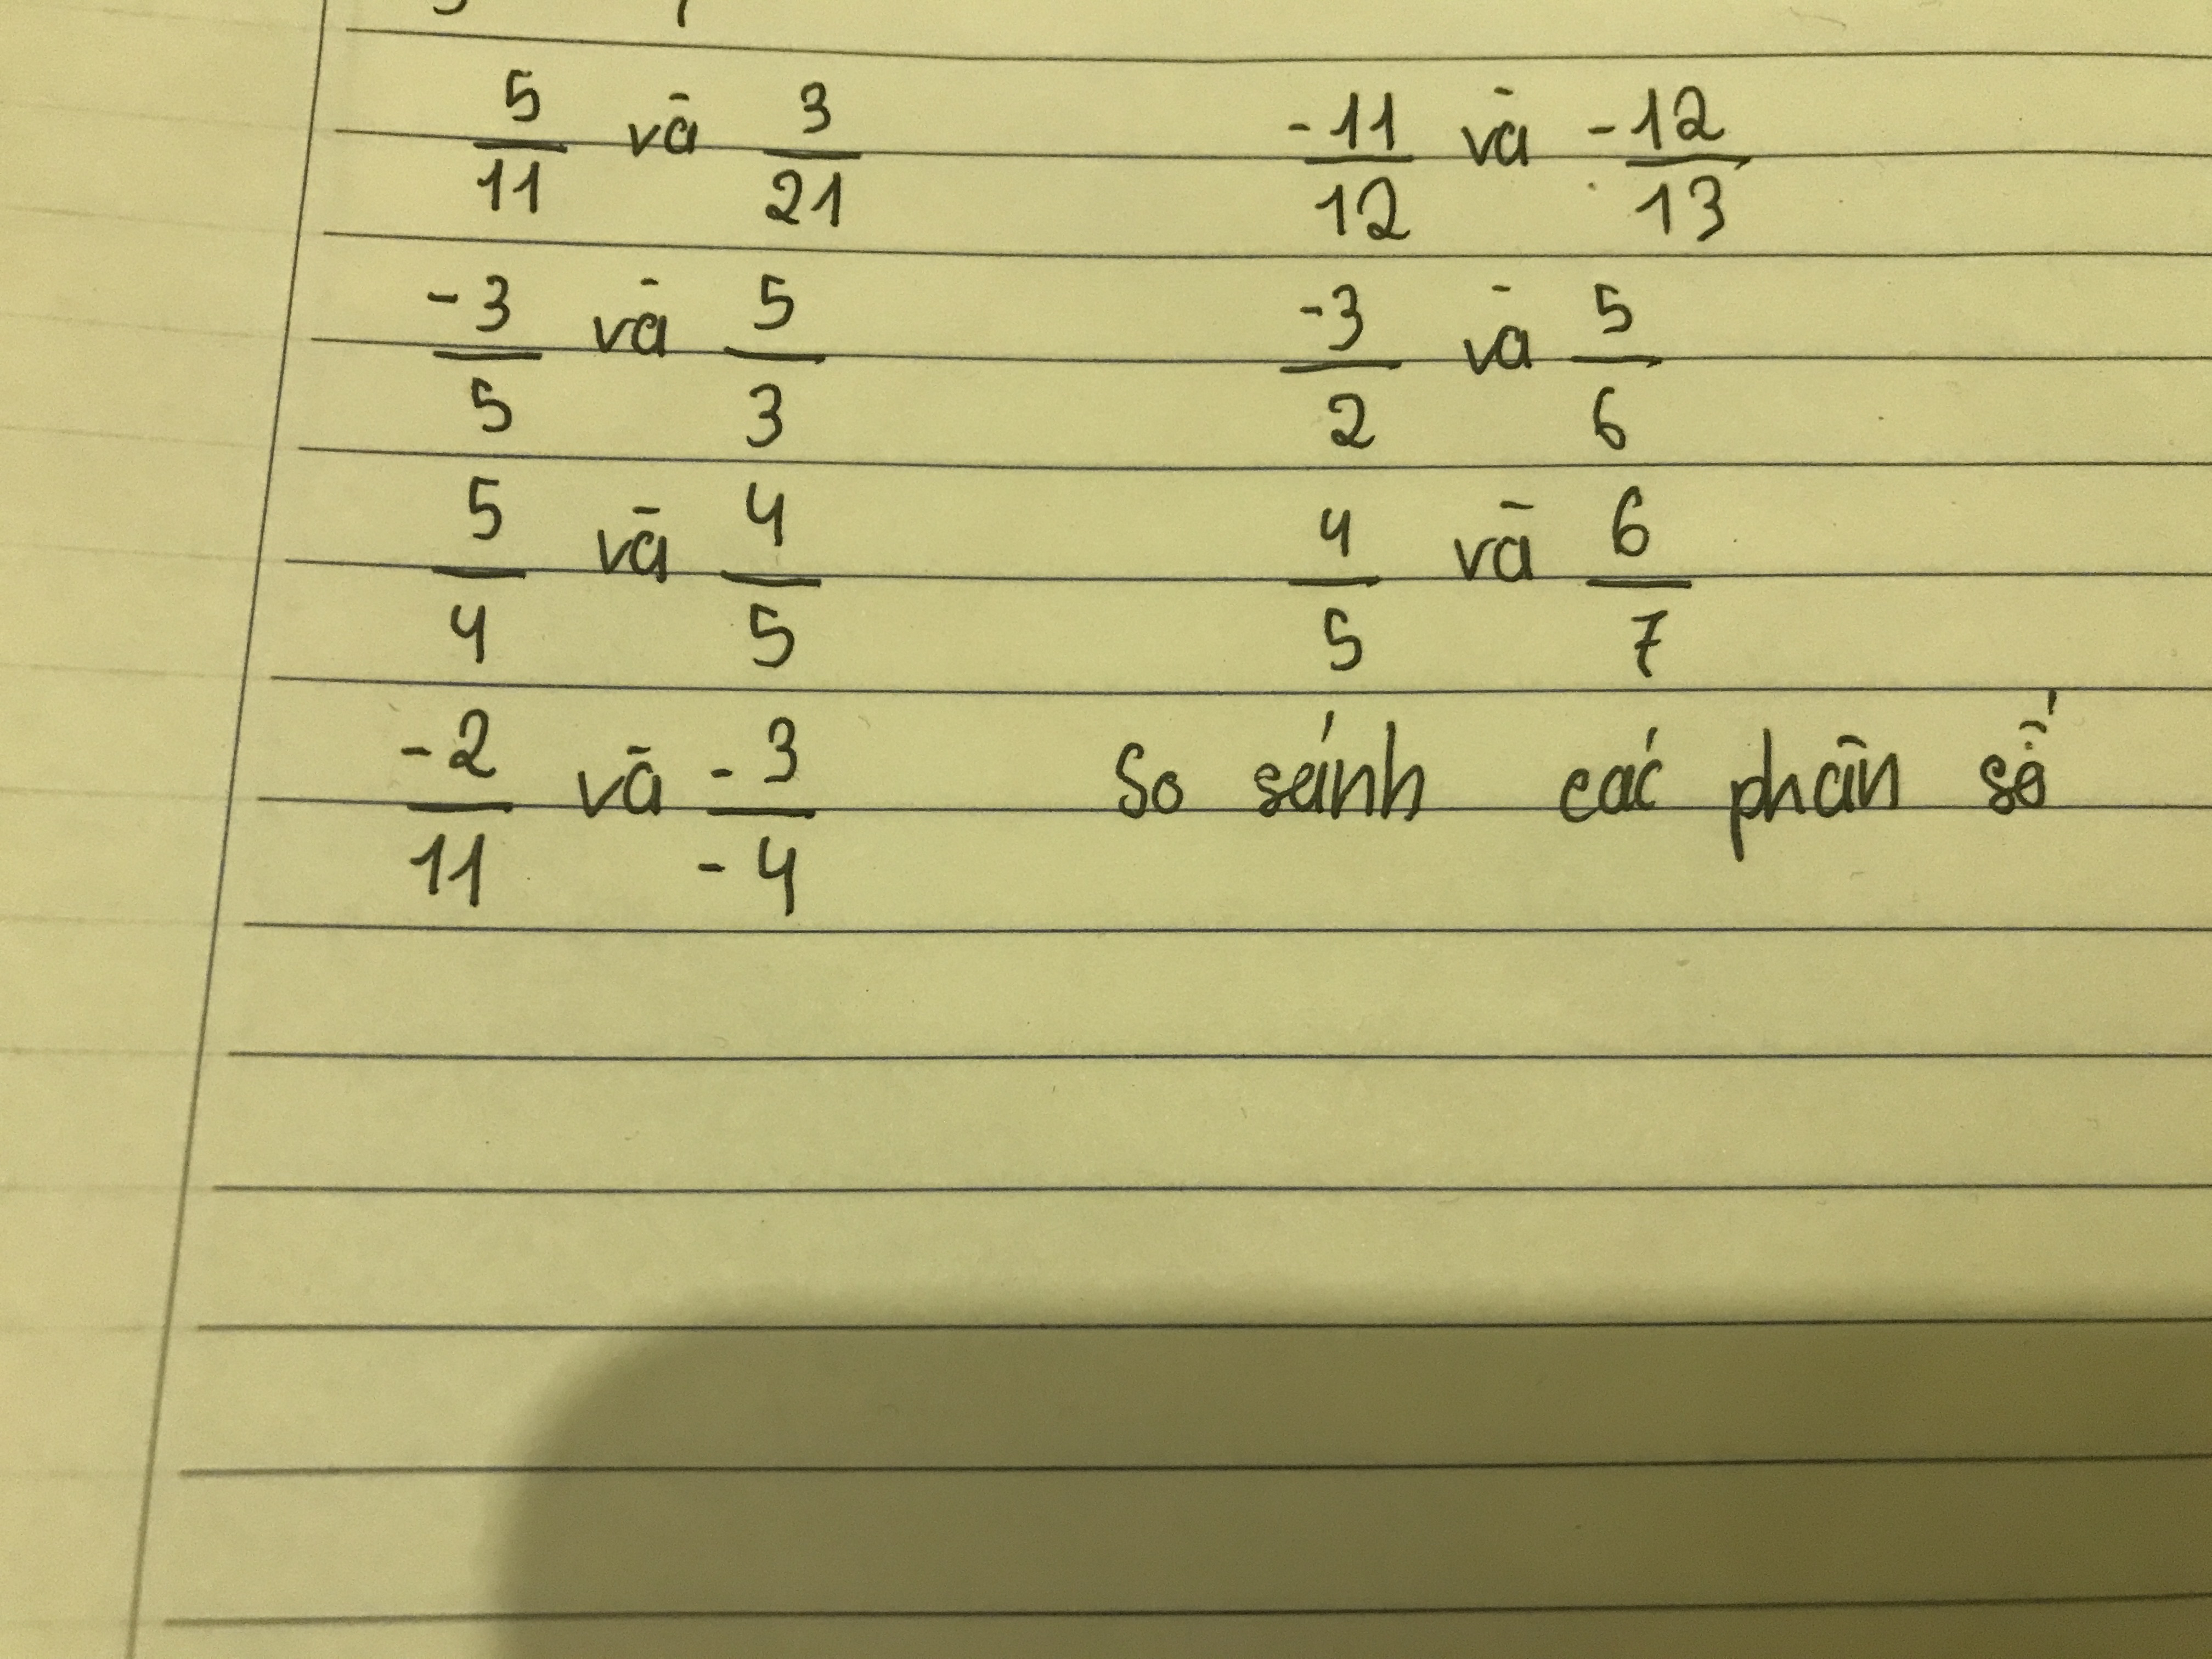 5/11 và 3/21 -11/12 và -12/13
-3/5 và 5/3 -3/2 và 5/6
5/4 và 4/5 4/5 và 6/7
-2/11 và -3/-4 So sánh các phân số